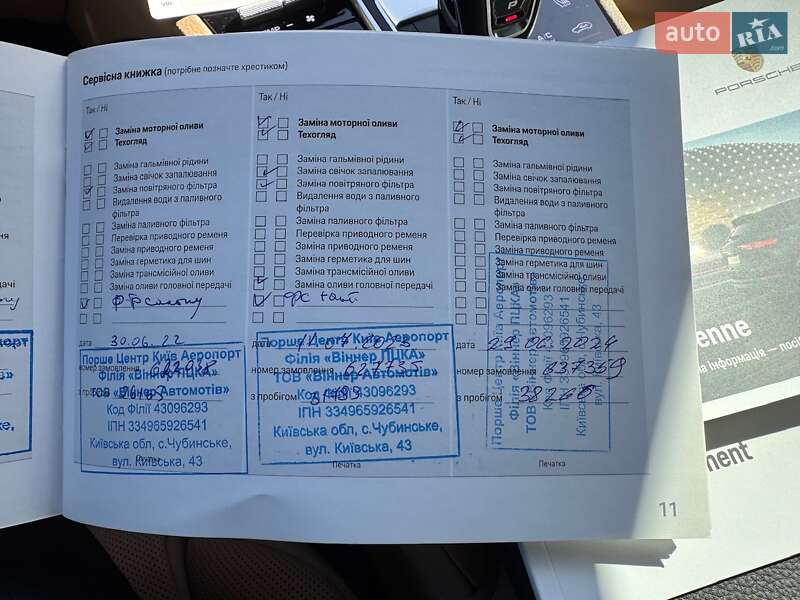 auto RIA .com
PORSCHE
Сервісна книжка (потрібне позначте хрестиком)
Так / Ні
Заміна моторної оливи
Техогляд
Заміна гальмівної рідини
Заміна свічок запалювання
Заміна повітряного фільтра
Видалення води з паливного
фільтра
Заміна паливного фільтра
Перевірка приводного ременя
Заміна приводного ременя
Заміна герметика для шин
Заміна трансмісійної оливи
Заміна оливи головної передачі
дата 30.06.22
номер замовлення
з пробігом
Порше Центр Київ Аеропорт
Філія «Віннер ПЦКА»
ТОВ «Віннер Автомотів»
Код Філії 43096293
ІПН 334965926541
Київська обл, с.Чубинське,
вул. Київська, 43
Так / Ні
Заміна моторної оливи
Техогляд
Заміна гальмівної рідини
Заміна свічок запалювання
Заміна повітряного фільтра
Видалення води з паливного
фільтра
Заміна паливного фільтра
Перевірка приводного ременя
Заміна приводного ременя
Заміна герметика для шин
Заміна трансмісійної оливи
Заміна оливи головної передачі
дата
номер замовлення 627735
з пробігом
Порше Центр Київ Аеропорт
Філія «Віннер ПЦКА»
ТОВ «Віннер Автомотів»
Код Філії 43096293
ІПН 334965926541
Київська обл, с.Чубинське,
вул. Київська, 43
Печатка
Так / Ні
Заміна моторної оливи
Техогляд
Заміна гальмівної рідини
Заміна свічок запалювання
Заміна повітряного фільтра
Видалення води з паливного
фільтра
Заміна паливного фільтра
Перевірка приводного ременя
Заміна приводного ременя
Заміна герметика для шин
Заміна трансмісійної оливи
Заміна оливи головної передачі
дата 29.06.2024
номер замовлення 637359
з пробігом 38240
Порше Центр Київ Аеропорт
Філія «Віннер ПЦКА»
ТОВ «Віннер Автомотів»
Код Філії 43096293
ІПН 334965926541
Київська обл, с.Чубинське,
вул. Київська, 43
Печатка
11
enne
Інформація — посі
ment